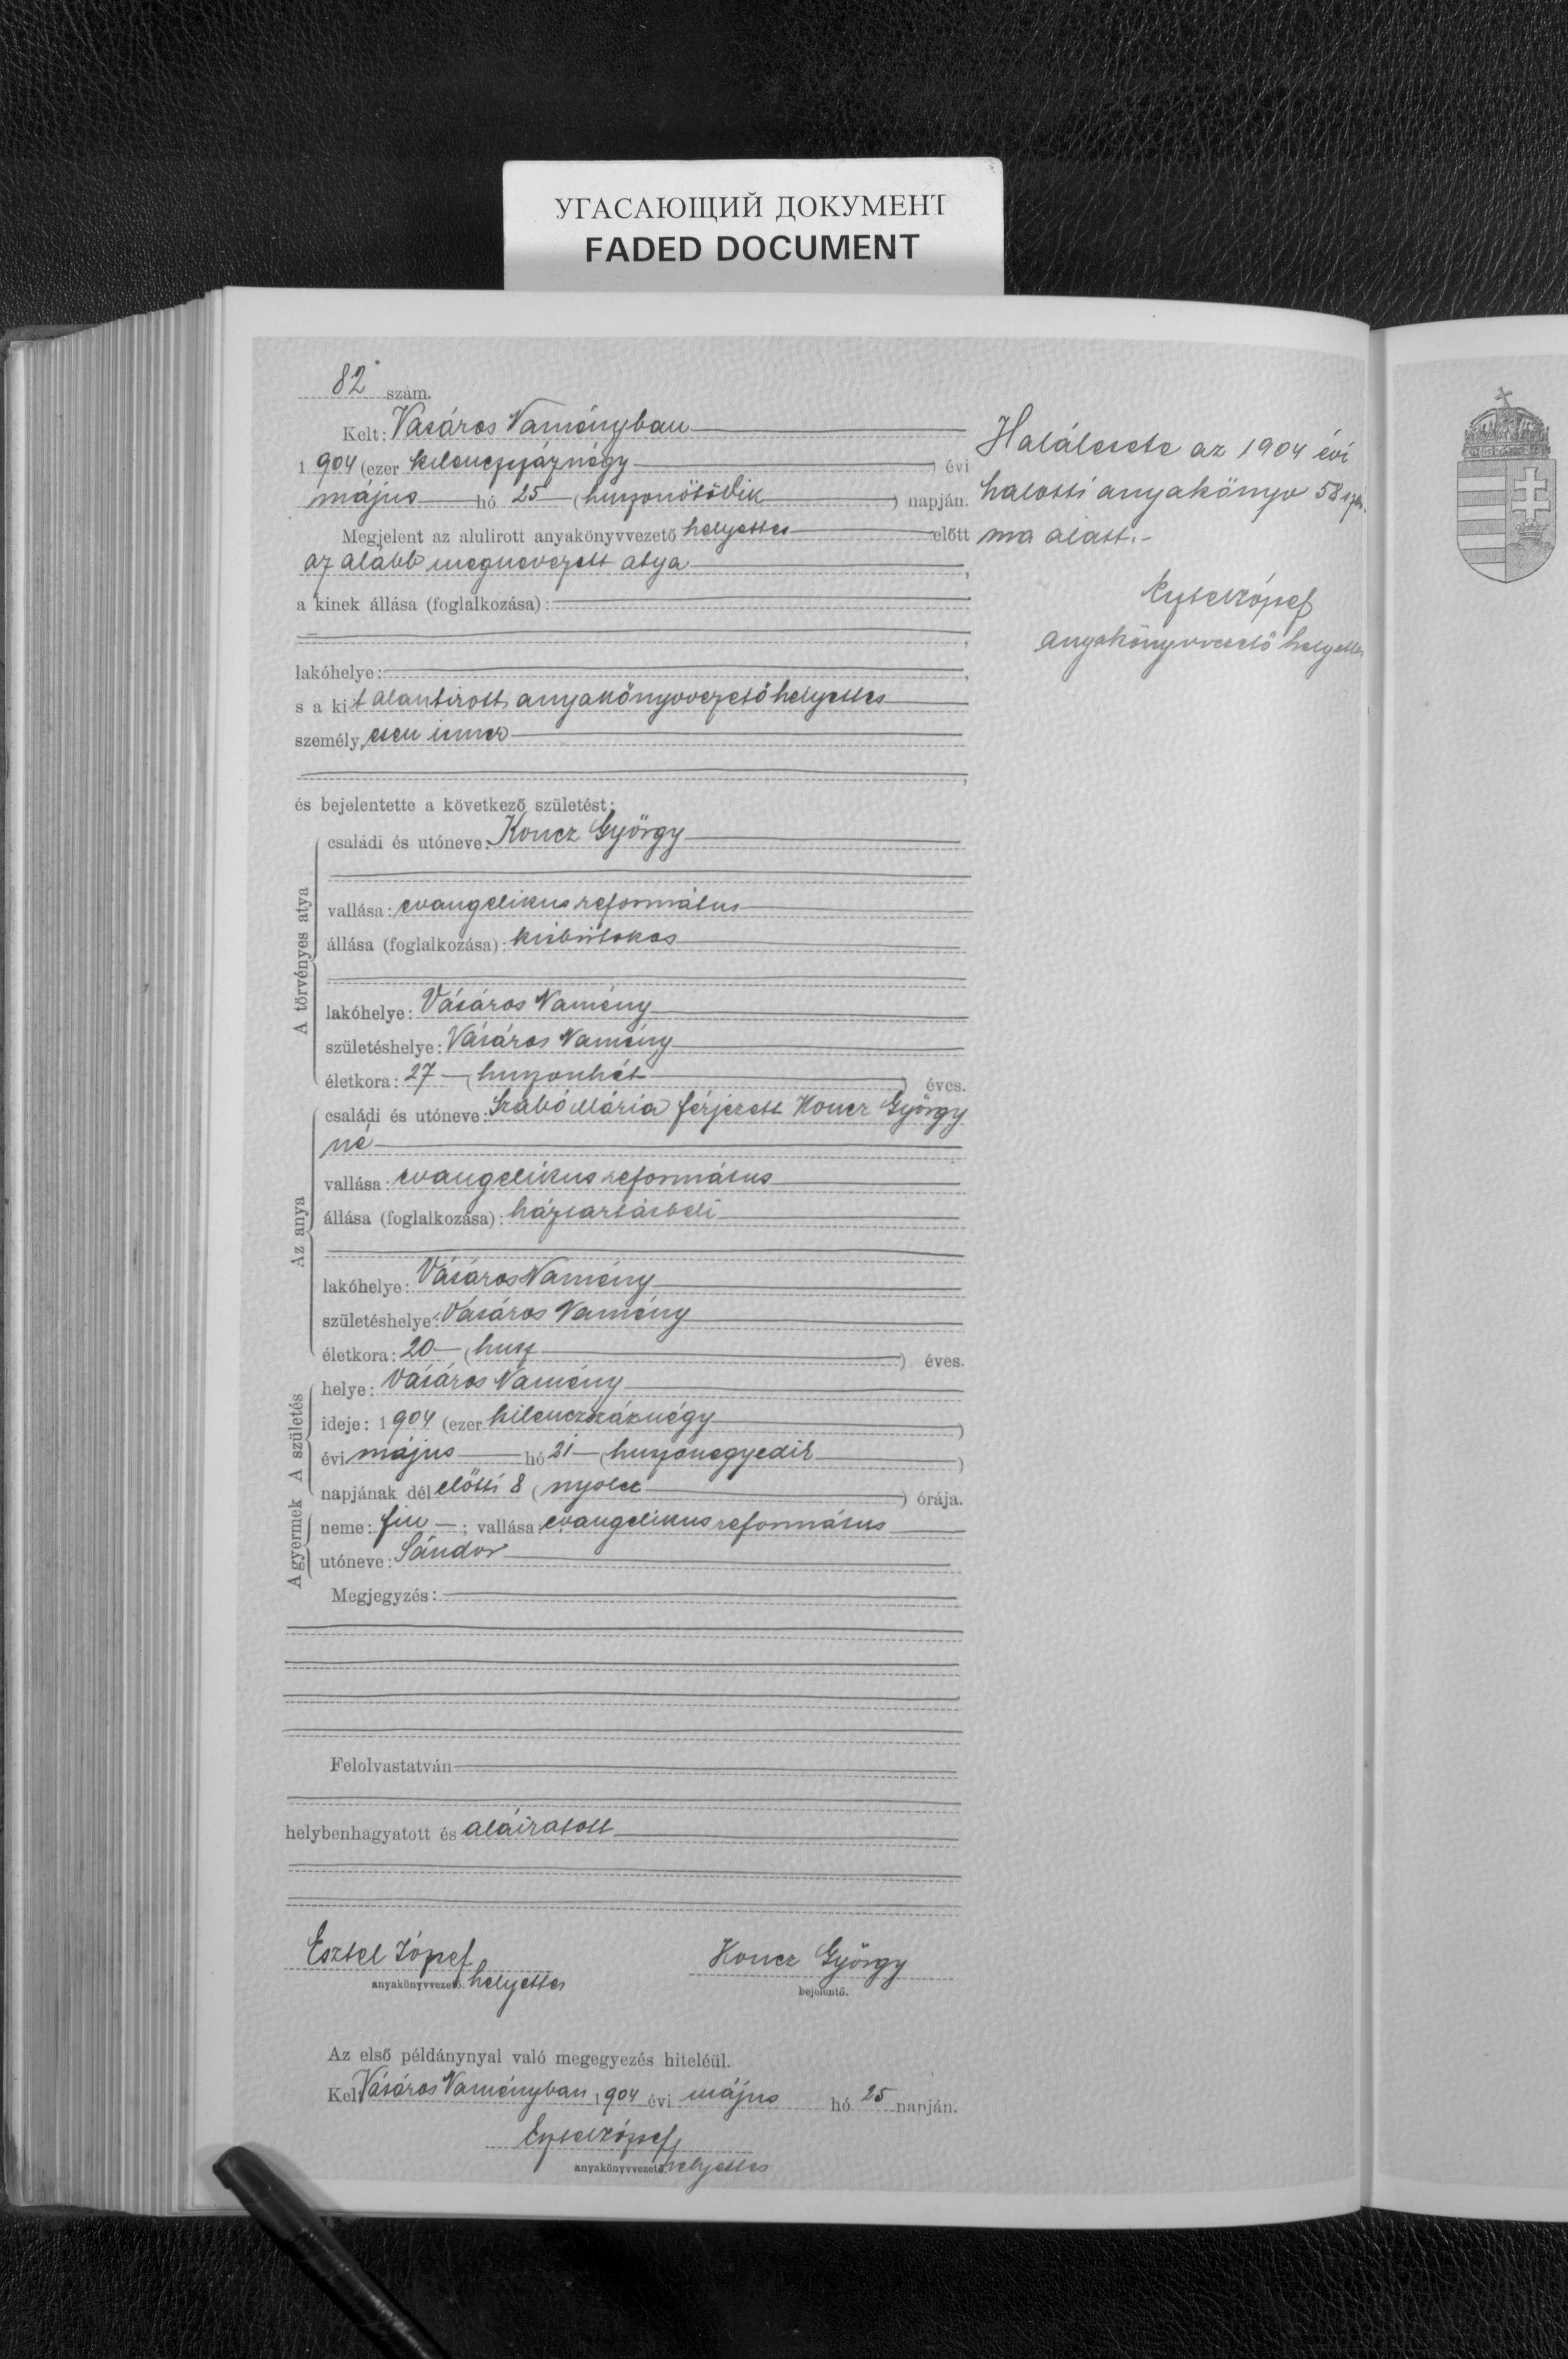 УГАСАЮЩИЙ ДОКУМЕНТ
FADED DOCUMENT
82 szám.
Kelt: Vásáros Naményban
1 904 (ezer kilenczszáznégy) évi
május hó 25 (huszonötödik) napján.
Megjelent az alulirott anyakönyvvezető helyettes előtt
az alább megnevezett atya,
a kinek állása (foglalkozása):
lakóhelye:
s a kit alantirott anyakönyvvezető helyettes
személyesen ismer
és bejelentette a következő születést:
A törvényes atya
családi és utóneve: Koncz György
vallása: evangelikus református
állása (foglalkozása): kisbirtokos
lakóhelye: Vásáros Namény
születéshelye: Vásáros Namény
életkora: 27 (huszonhét) éves.
Az anya
családi és utóneve: Szabó Mária férjezett Koncz György
né
vallása: evangelikus református
állása (foglalkozása): háztartásbeli
lakóhelye: Vásáros Namény
születéshelye: Vásáros Namény
életkora: 20 (husz) éves.
A születés
helye: Vásáros Namény
ideje: 1 904 (ezer kilenczszáznégy)
évi május hó 21 (huszonegyedik)
napjának dél előtti 8 (nyolcz) órája.
A gyermek
neme: fiu ; vallása evangelikus református
utóneve: Sándor
Megjegyzés:
Felolvastatván
helybenhagyatott és aláiratott
Esztel József
anyakönyvvezető. helyettes
Koncz György
bejelentő.
Az első példánynyal való megegyezés hiteléül.
Kelt Vásáros Naményban 1904 évi május hó 25 napján.
Esztel József
anyakönyvvezető. helyettes
Halálesete az 1904 évi
halotti anyakönyv 58 szá
ma alatt.-
Esztel József
anyakönyvvezető helyettes